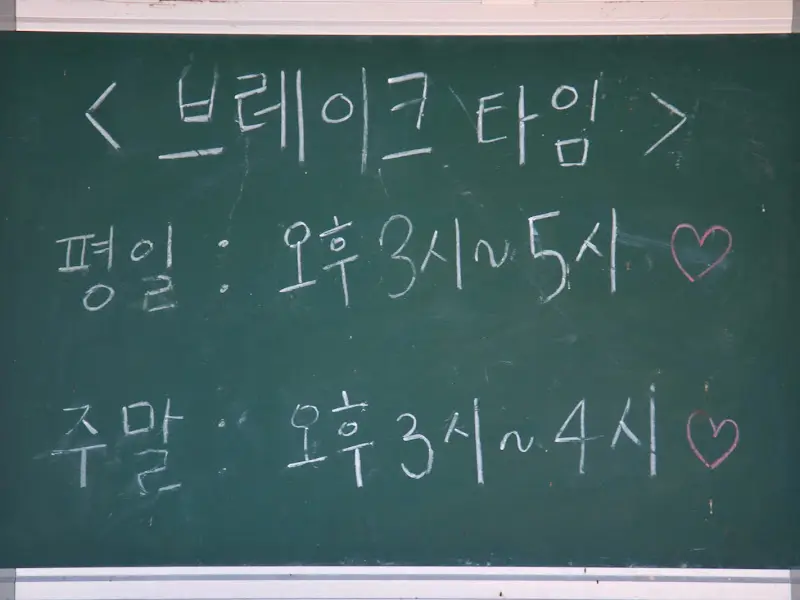 < 브레이크 타임 >
평일 : 오후 3시 ~ 5시 ♡
주말 : 오후 3시 ~ 4시 ♡